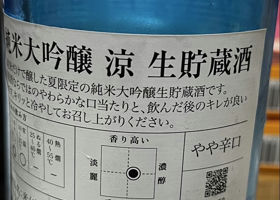 純米大吟醸 涼 生貯蔵酒
だけで醸した夏限定の純米大吟醸生貯蔵酒です。
ではのやわらかな口当たりと、飲んだ後のキレが良い
りと冷やしてお召し上がりください。
香り高い
やや辛口
淡麗
濃醇
ぬる燗
40℃
熱燗